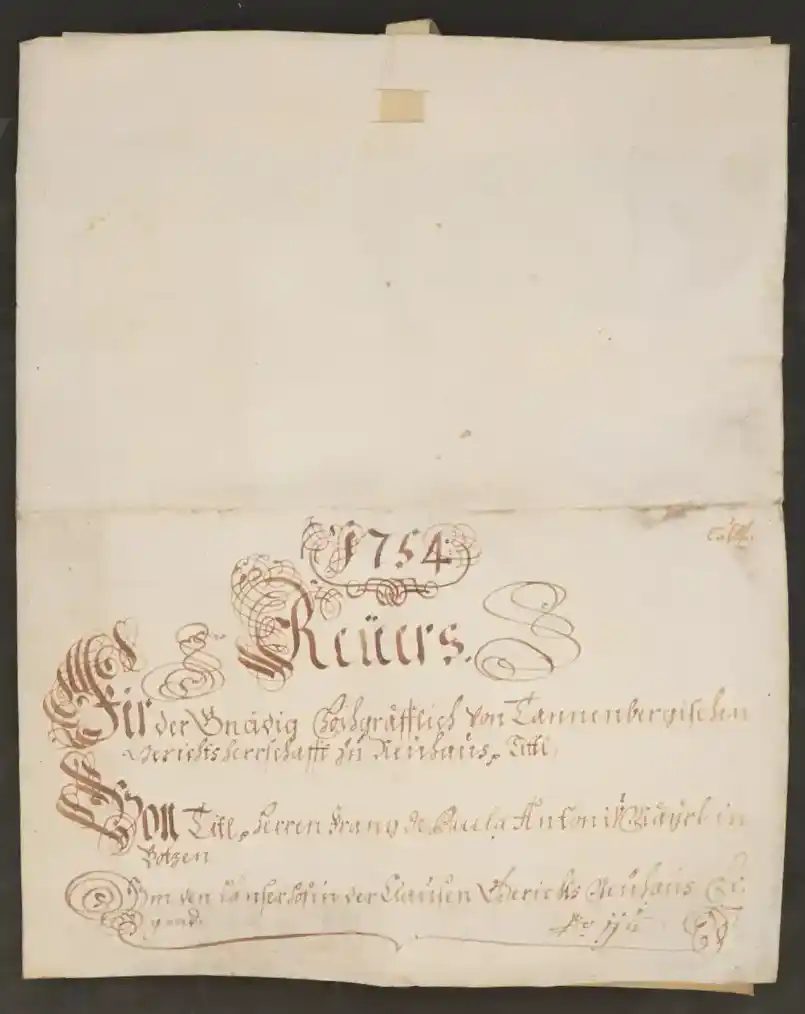 1754.
Reüers.
Fir der Gnädig Hochgräfflich von Tannenbergischen
Gerichtsherrschafft zu Neuhaus, Titl.
Von Titl. Herren Franz de Paula Antoni Mäyrl in
Botzen
Um den in der Clausen Gerichts Neuhaus
No